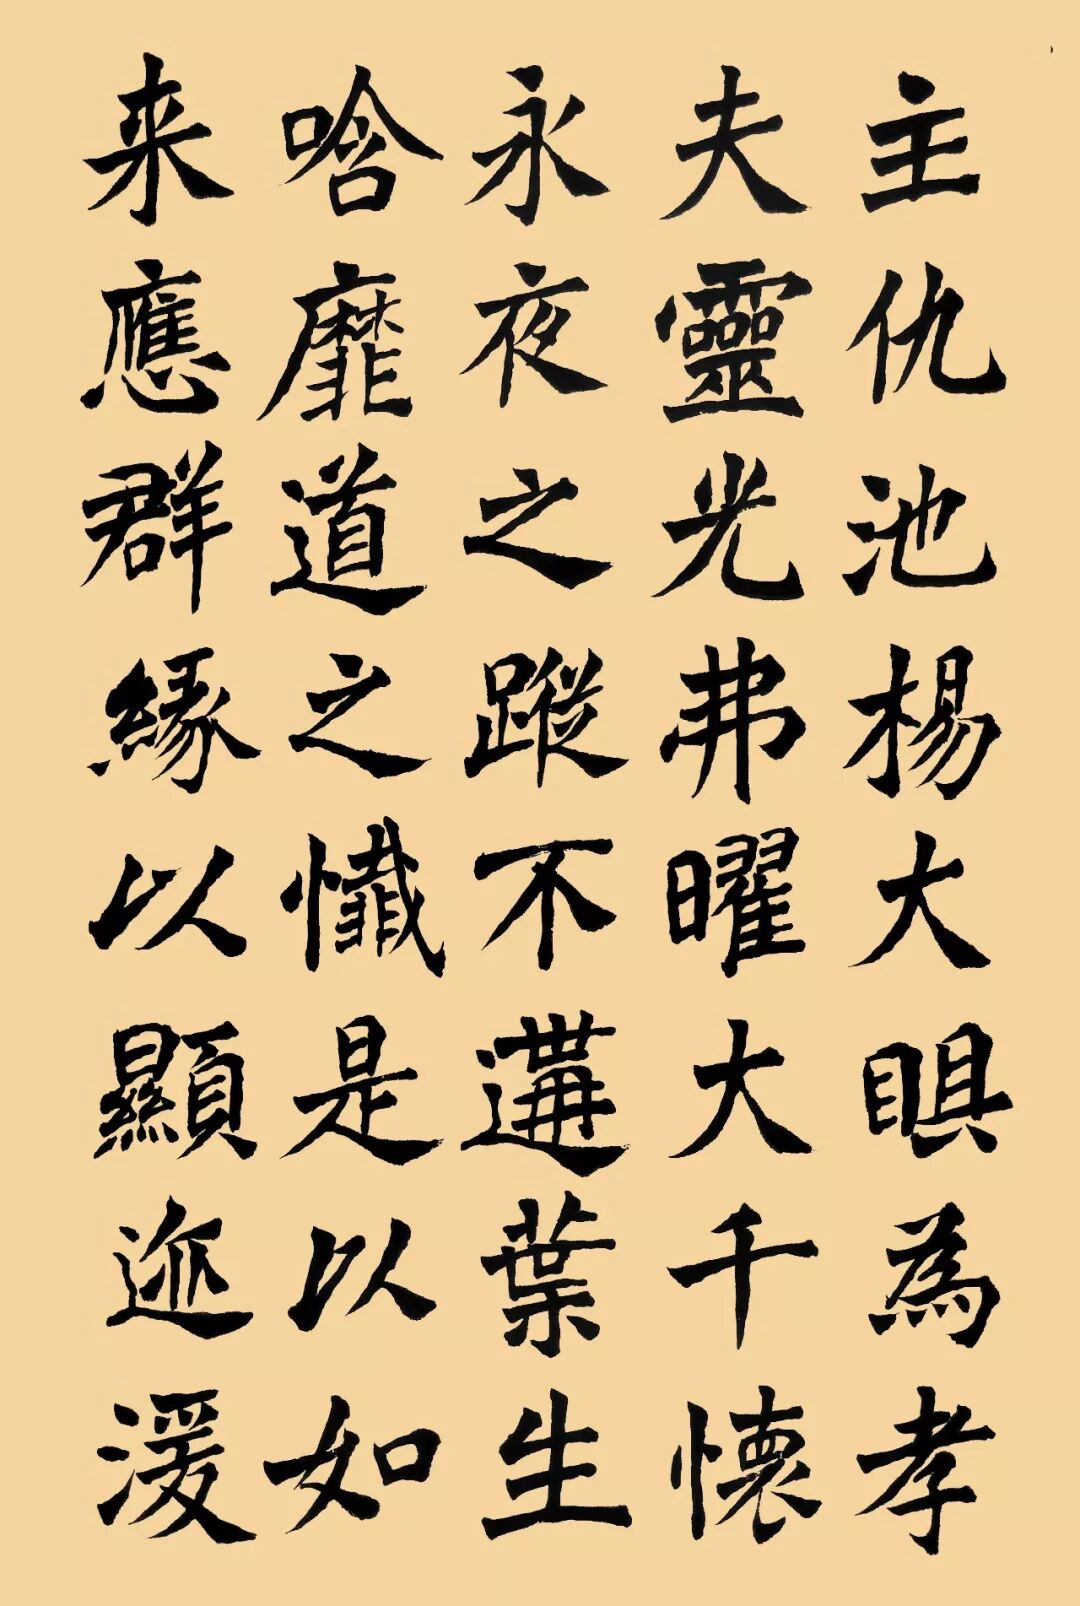 主仇池楊大眼為孝
夫靈光弗曜大千懷
永夜之蹤不遘葉生
唅靡道之懺是以如
来應群緣以顯迹湲